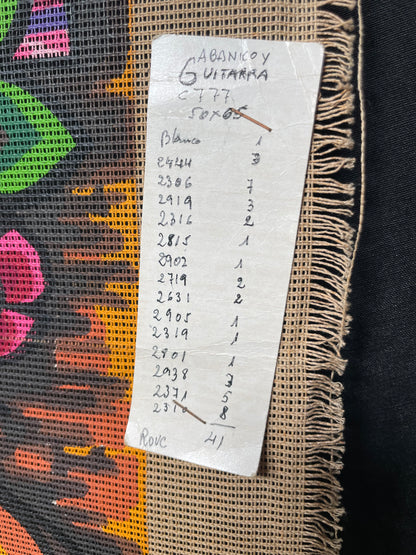 ABANICO Y
GUITARRA
C 777
50x65
Blanco 1
2444 3
2306 7
2919 3
2316 2
2815 1
2902 1
2719 2
2631 2
2905 1
2319 1
2801 1
2938 3
2371 5
8
41